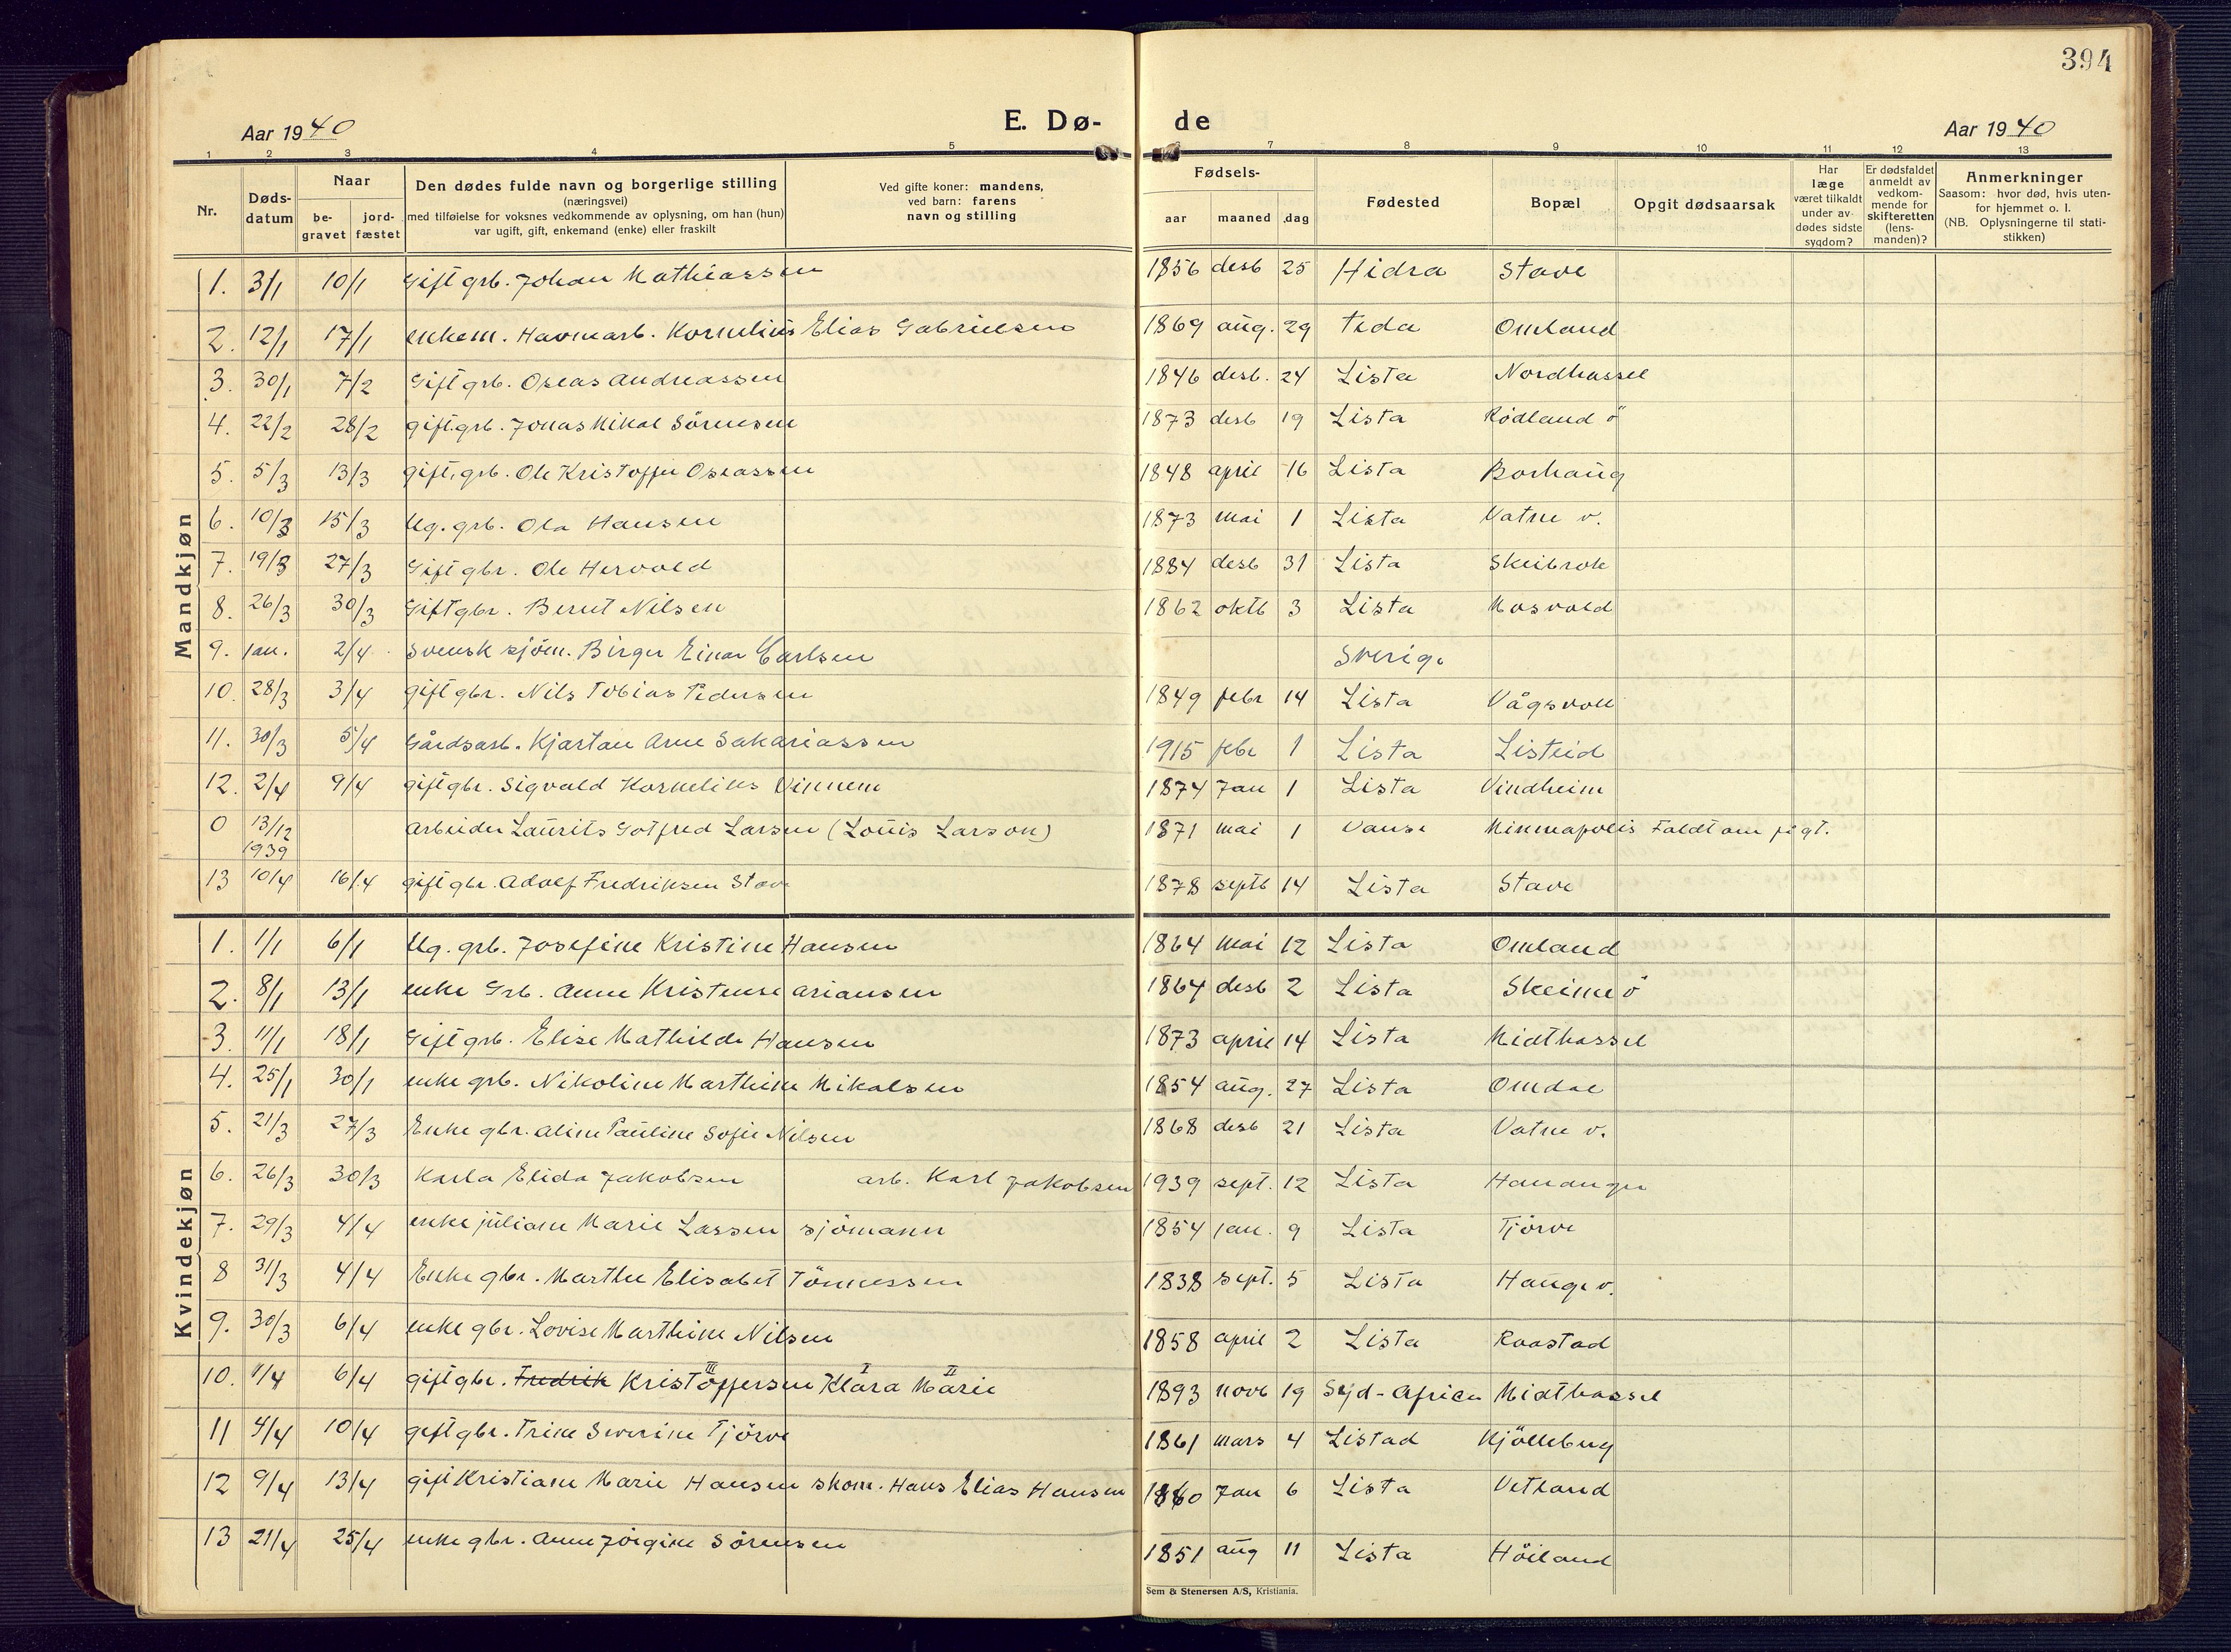 394
Aar 1940 E. Dø- de Aar 1940
1 2 3 4 5 6 7 8 9 10 11 12 13
Nr. Døds-datum Naar be-gravet jord-fæstet Den dødes fulde navn og borgerlige stilling (næringsvei) med tilføielse for voksnes vedkommende av oplysning, om han (hun) var ugift, gift, enkemand (enke) eller fraskilt Ved gifte koner: mandens, ved barn: farens navn og stilling Fødsels- aar maaned dag Fødested Bopæl Opgit dødsaarsak Har læge været tilkaldt under av-dødes sidste sygdom? Er dødsfaldet anmeldt av vedkom-mende for skifteretten (lens-manden)? Anmerkninger Saasom: hvor død, hvis uten-for hjemmet o. l. (NB. Oplysningerne til stati-stikken)
Mandkjøn
1. 3/1 10/1 Gift grb. Johan Mathiassen 1856 desb 25 Hidra Stave
2. 12/1 17/1 enkem. Havnarb. Kornelius Elias Gabrielsen 1869 aug. 29 Omland
3. 30/1 7/2 Gift grb. Oseas Andreassen 1846 desb. 24 Lista Nordhassel
4. 22/2 28/2 gift grb. Jonas Mikal Sørensen 1873 desb 19 Lista Rödland ö
5. 5/3 13/3 gift. grb. Ole Kristoffer Oseassen 1848 april 16 Lista Borhaug
6. 10/3 15/3 Ug. grb. Ola Hansen 1873 mai 1 Lista Vatne v.
7. 19/3 27/3 Gift gbr. Ole Hervold 1884 desb 31 Lista Skeibrok
8. 26/3 30/3 Gift gbr. Bernt Nilsen 1862 oktb 3 Lista Mosvold
9. jan. 2/4 Svensk sjöm. Birger Einar Carlsen Sverige
10. 28/3 3/4 gift gbr. Nils Tobias Pedersen 1849 febr 14 Lista Vågsvoll
11. 30/3 5/4 Gårdsarb. Kjartan Arne Sakariassen 1915 febr 1 Lista Listeid
12. 2/4 9/4 gift gbr. Sigvald Kornelius Vinnem 1874 Jan 1 Lista Vindheim
0 13/12 1939 Arbeider Laurits Gotfred Larsen (Louis Larson) 1871 mai 1 Vanse Minneapolis Faldt om
13 10/4 16/4 gift gbr. Adolf Fredriksen Stave 1878 septb 14 Lista Stave
Kvindekjøn
1. 1/1 6/1 Ug. grb. Josefine Kristine Hansen 1864 mai 12 Lista Omland
2. 8/1 13/1 enke Grb. Anne Kristense ariansen 1864 desb 2 Lista Skeime ö
3. 11/1 18/1 Gift grb. Elise Mathilde Hansen 1873 april 14 Lista Midthassel
4. 25/1 30/1 enke grb. Nikoline Marthine Mikalsen 1854 aug. 27 Lista Omdal
5. 21/3 27/3 Enke gbr. Aline Pauline Sofie Nilsen 1868 desb 21 Lista Vatne v.
6. 26/3 30/3 Karla Elida Jakobsen arb. Karl Jakobsen 1939 sept. 12 Lista Hananger
7. 29/3 4/4 enke juliane Marie Lassen sjömann 1854 jan. 9 Lista Tjörve
8 31/3 4/4 Enke gbr. Marthe Elisabet Tönnessen 1838 sept. 5 Lista Hauge v.
9. 30/3 6/4 enke gbr. Lovise Marthine Nilsen 1858 april 2 Lista Raastad
III I II
10. 1/4 6/4 gift gbr. Fredrik Kristoffersen Klara Marie 1893 novb 19 Syd-Africa Midthassel
11 4/4 10/4 gift gbr. Trine Severine Tjörve 1861 mars 4 Listad Kjölleberg
12 9/4 13/4 gift Kristiane Marie Hansen skom. Hans Elias Hansen Jan 6 Lista Vetland
13 21/4 25/4 enke gbr. Anne Jörgine Sörensen 1851 aug 11 Lista Höiland
Sem & Stenersen A/S, Kristiania.